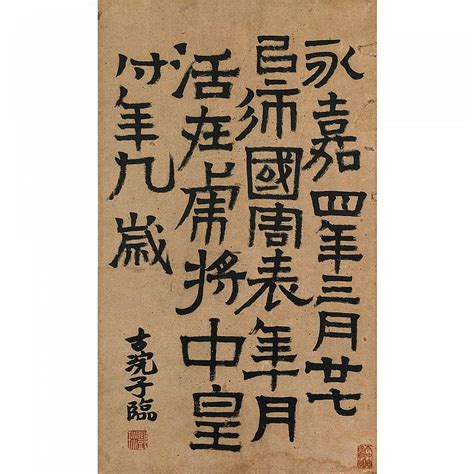 永嘉四年三月廿七
日師國周表年十月
活在虜將中皇
付年九歲
古浣子臨